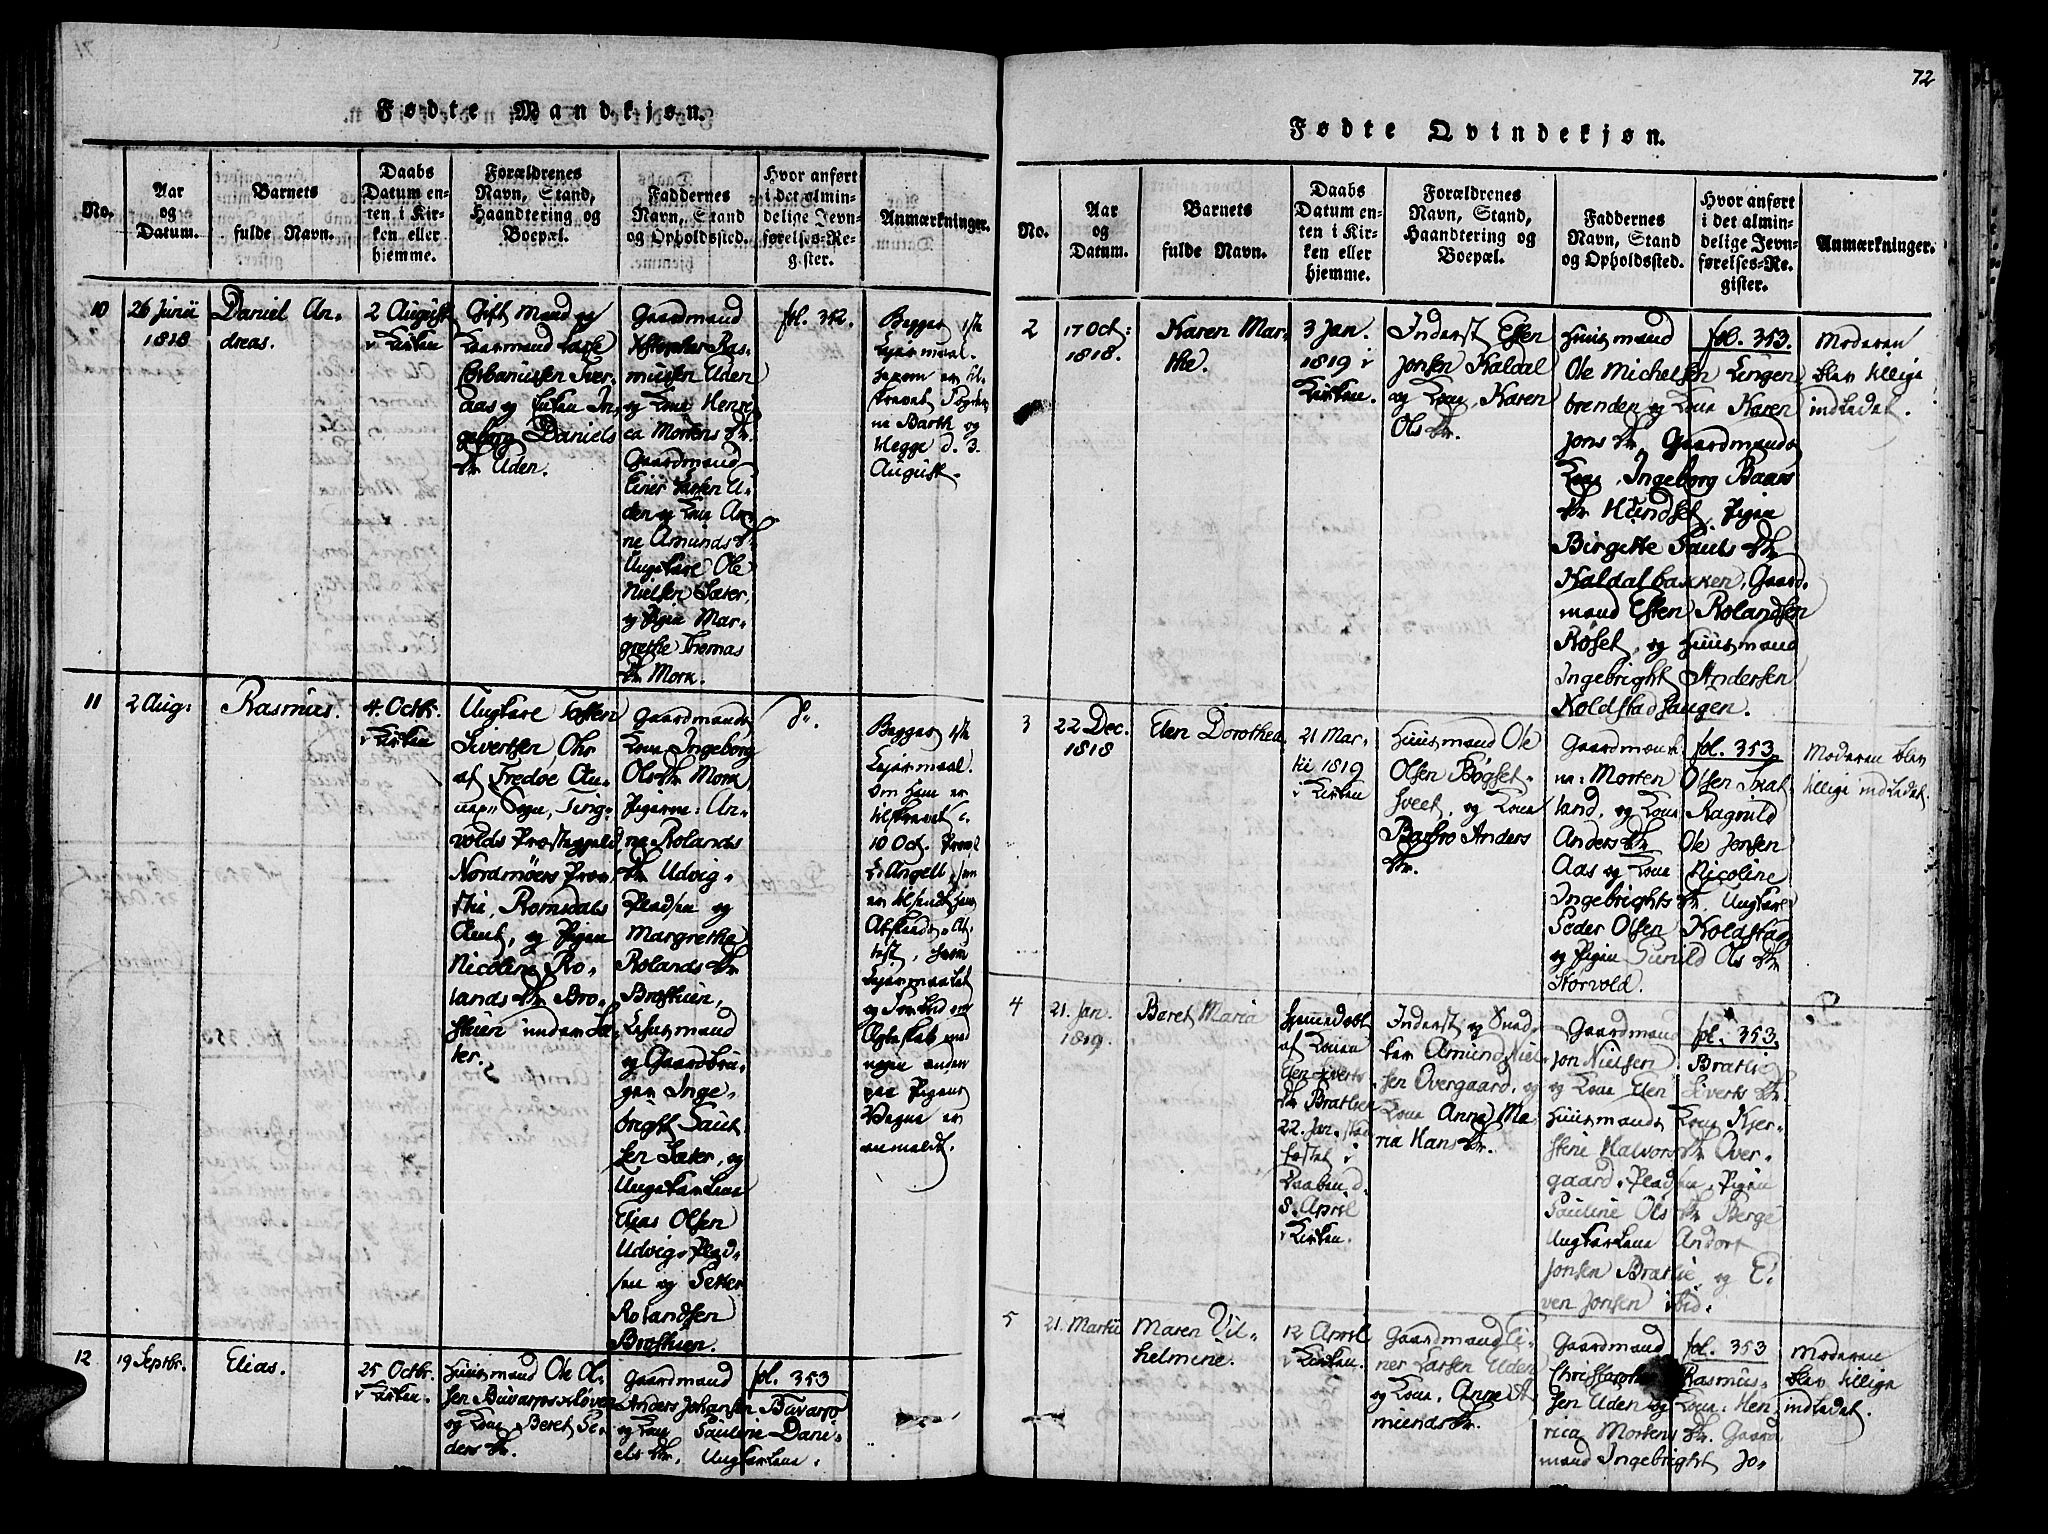 72
Fødte Mandkjøn.
No.
Aar
og
Datum.
Barnets
fulde Navn.
Daabs
Datum en-
ten i Kir-
ken eller
hjemme.
Forældrenes
Navn, Stand,
Haandtering og
Boepæl.
Faddernes
Navn, Stand
og Opholdssted.
Hvor anført
i det almin-
delige Jevn-
førelses-Re-
gister.
Anmærkninger.
10
26 Junii
1818
Daniel An-
dreas.
2 August
i Kirken
Gift Mand og
Gaardmand Lasse
Iver-
aas og Enken In-
geborg Daniels
Dtr Uden.
Gaardmand
Christopher Ras-
mussen Uden
og Kone Henri-
ca Mortens Dtr.
Gaardmand
Einer Larsen U-
den og Kone An-
ne Amunds Dtr
Ungkarl Ole
Nielsen Sæter,
og Pigen Mar-
grethe Thomas
Dtr Mork.
fol. 352.
Begges 1ste
Lejermaal.
d. 3.
August.
11
2 Aug:
Rasmus.
4. Octbr.
i Kirken
Ungkarl Torsten
Sivertsen Ohr
af Fredøe An-
nex Sogn, Ting-
volds Præstegjeld,
Nordmøers Prov-
stie, Romsdals
Amt, og Pigen
Nicoline Ro-
lands Dtr Bro-
skien under Sæ-
ter.
Gaardmands
Kone Ingeborg
Ols Dtr Mork
Pigerne: An-
ne Rolands
Dtr Udvig-
Pladsen og
Margrethe
Rolands Dtr
Broskien,
Huusmand
og Gaardbru-
ger Inge-
bright Paul-
sen Sæter, og
Ungkarlene
Elias Olsen
Udvigs Plad-
sen og Petter
Rolandsen
Broskien.
Begges 1ste
Lejermaal.
Om ham er
tilskrevet
10 Oct. Provst
Angell, som
er tilsendt hans
Afskeeds At-
test, hvor
Lejermaalet
og Forbud mod
Ægteskab med
nogen anden
paa Pigens
Vegne er
anmeldt.
12
19 Septbr.
Elias.
25 Octbr.
i Kirken.
Huusmand Ole Ol-
sen
og Kone Beret Pe-
ders Dtr.
Gaardmand
Anders Johansen
og Kone Pauline Dani-
els Dtr. Ungkarlene:
fol. 353
Fødte Qvindekjøn.
No.
Aar
og
Datum.
Barnets
fulde Navn.
Daabs
Datum en-
ten i Kir-
ken eller
hjemme.
Forældrenes
Navn, Stand,
Haandtering og
Boepæl.
Faddernes
Navn, Stand
og Opholdssted.
Hvor anført
i det almin-
delige Jevn-
førelses-Re-
gister.
Anmærkninger.
2
17 Oct:
1818.
Karen Mar-
the.
3 Jan.
1819 i
Kirken.
Inderst Esten
Jonsen Kaldal
og Kone, Karen
Ols Dtr.
Huusmand
Ole Michelsen Lingen
brenden og Kone Karen
Jons Dtr, Gaardmands
Kone, Ingeborg Baars
Dtr Hundset, Pigen
Birgitte Pauls Dtr
Kaldalbakken, Gaard-
mand Esten Rolandsen
Røset, og Huusmand
Ingebright Andersen
Koldstadhaugen.
fol. 353.
Moderen
blev tillige
indledet.
3
22 Dec.
1818
Elen Dorothea.
21 Mar-
tii 1819
i Kirken
Huusmand Ole
Olsen Bøgset-
sveet, og Kone
Barbro Anders
Dtr.
Gaardmænde-
ne: Morten Olsen Træt-
land, og Kone Ragnild
Anders Dtr Ole Jensen
Aas og Kone Nicoline
Ingebrights Dtr. Ungkarl
Peder Olsen Koldstad
og Pigen Gunild Ols Dtr
Størvold.
fol. 353.
Moderen blev
tillige indledet.
4
21. Jan.
1819.
Beret Maria
hjemmedøbt
af Konen
Elen Siverts
Dtr Bratlien
22. Jan. stad
fæstet i
Daaben d.
8. April
i Kirken.
Inderst og Sned-
ker Amund Niel-
sen Overgaard, og
Kone Anne Ma-
ria Hans Dtr.
Gaardmand
Jon Nielsen Bratlie
og Kone Elen Siverts Dtr
Huusmands Kone Kjer-
stine Halvors Dtr Over-
gaards Pladsen, Pigen
Pauline Ols Dtr Berge
Ungkarlene Andorf
Jonsen Bratlie, og E-
ven Jonsen ibid.
fol. 353.
5
21. Martii
Maren Vil-
helmine.
12 April
i Kirken.
Gaardmand Ei-
ner Larsen Uden
og Kone, Anne A-
munds Dtr.
Gaardmand
Christopher Rasmus-
sen Uden og Kone, Hen-
rica Mortens Dtr. Gaard
mand Ingebright Jo-
fol. 353
Moderen
blev tillige
indledet.